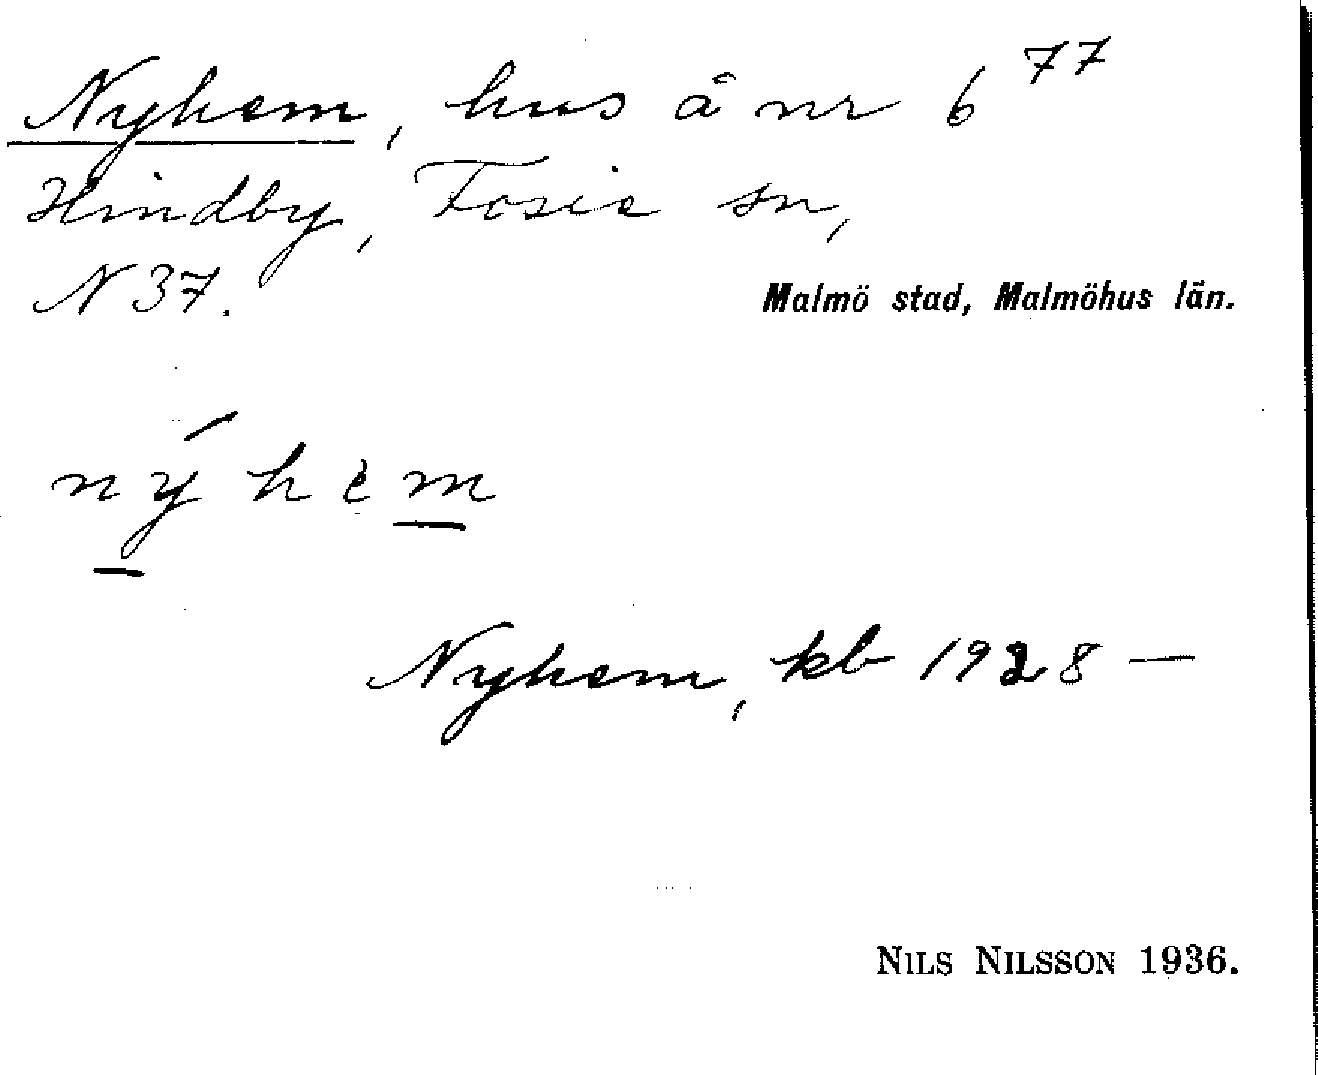 Nyhem, hus å nr 6⁷⁷
Hindby, Fosie sn,
N 37.
Malmö stad, Malmöhus län.
nýhèm
Nyhem, kb 1928 —
NILS NILSSON 1936.